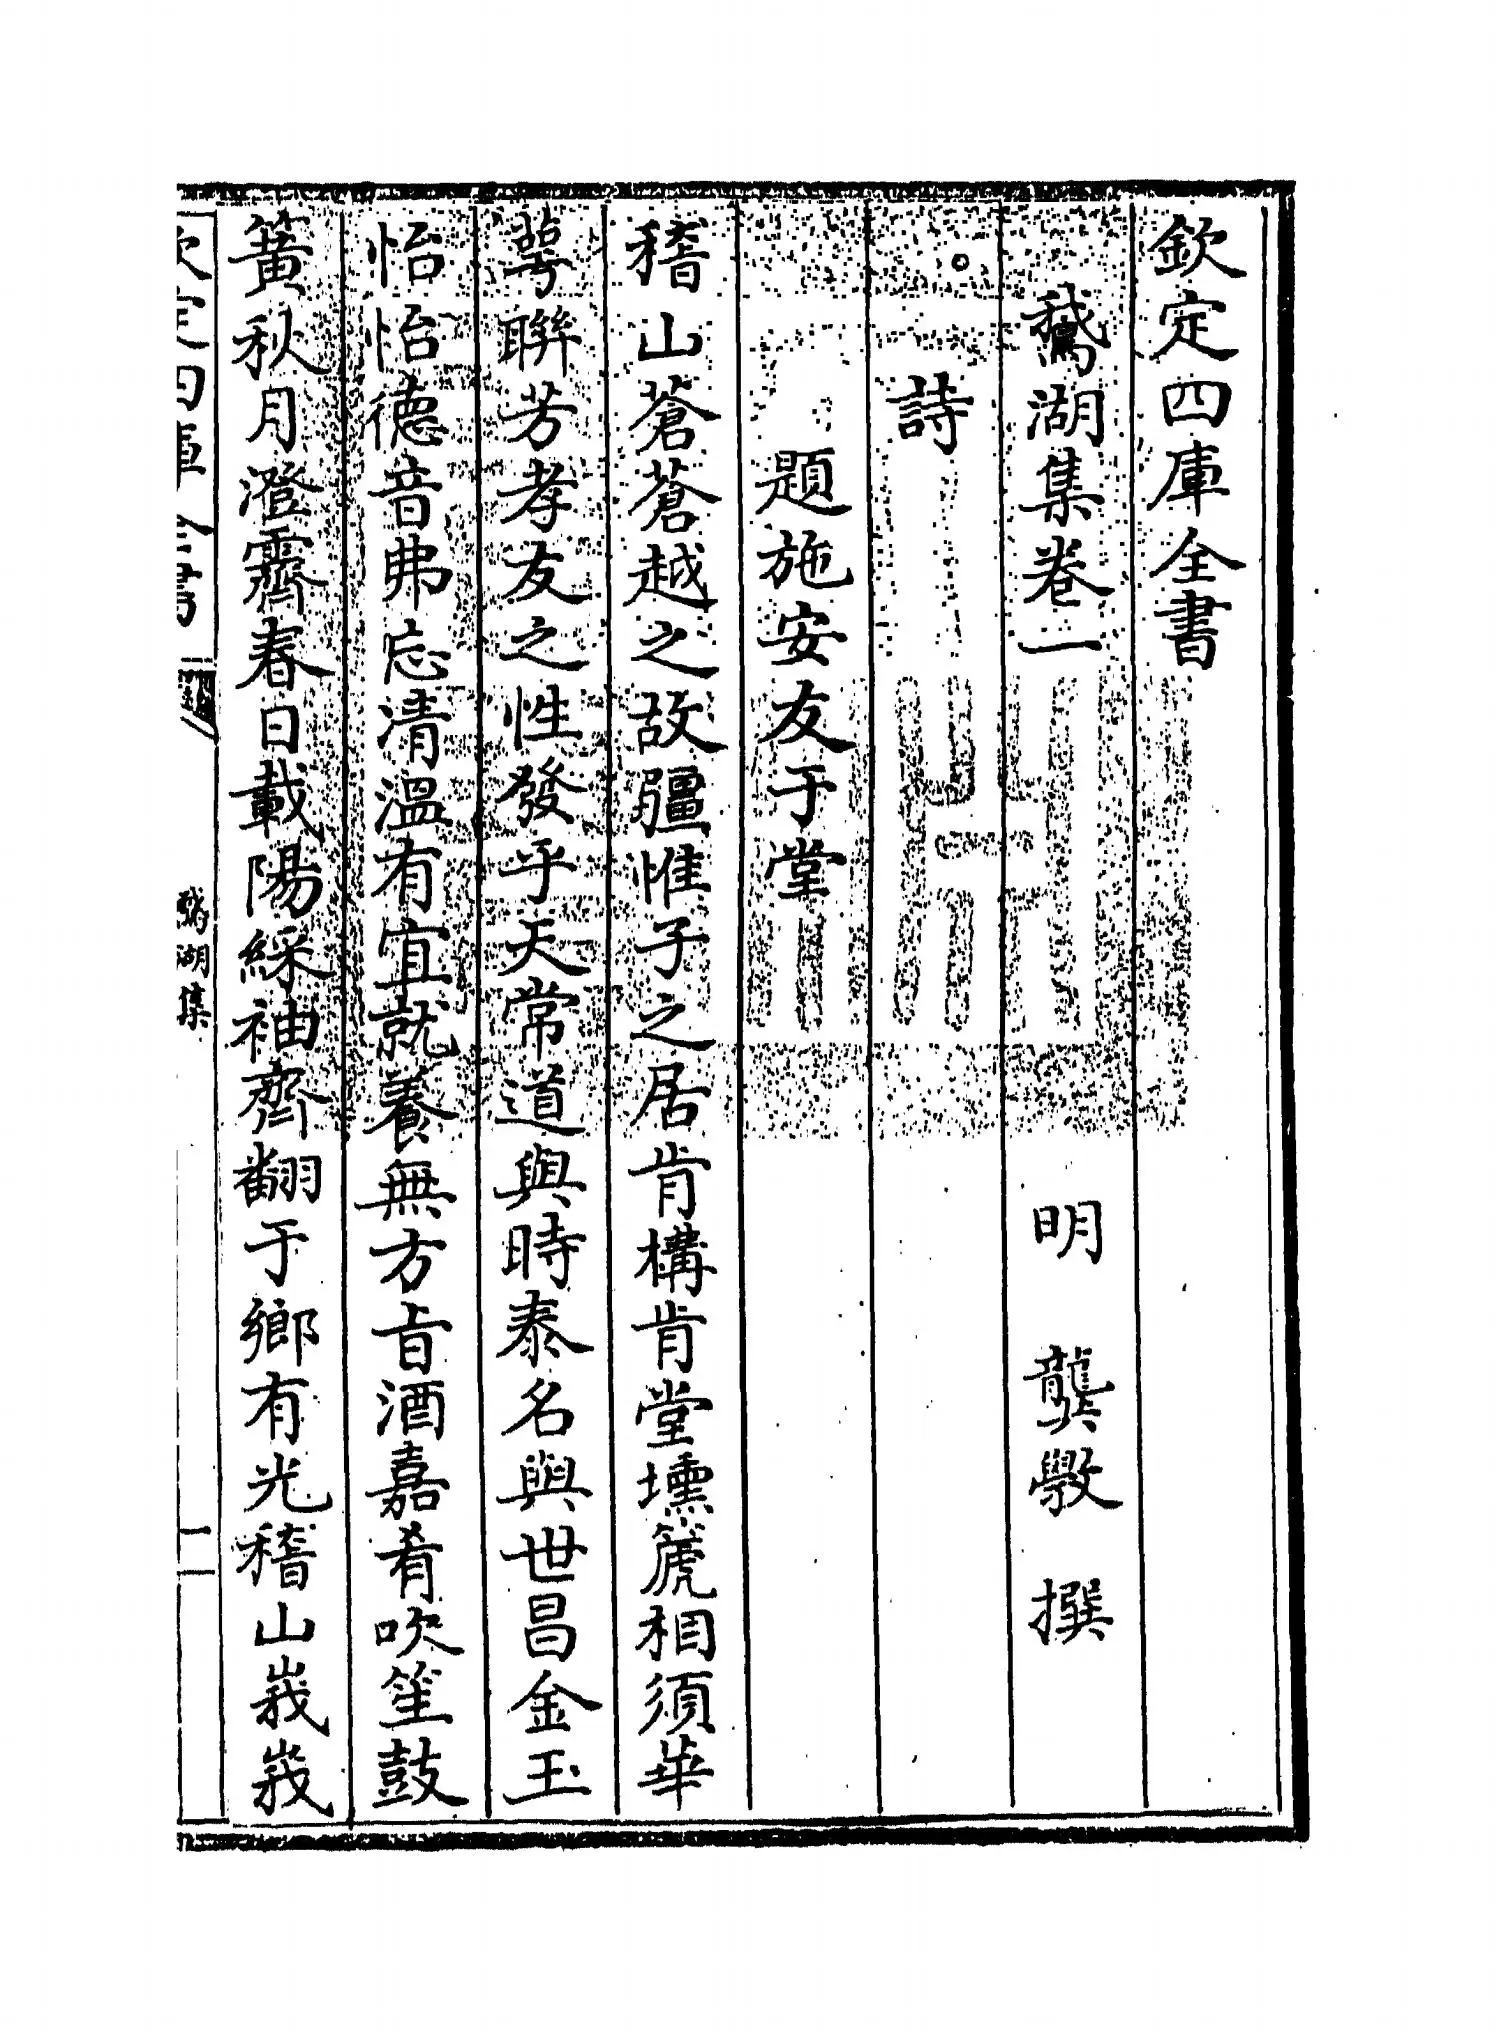 欽定四庫全書
鵞湖集卷一
明 龔斆 撰
詩
題施安友于堂
稽山蒼蒼越之故疆惟子之居肯構肯堂壎篪相須華
萼聯芳孝友之性發乎天常道與時泰名與世昌金玉
怡怡德音弗忘清溫有宜就養無方旨酒嘉肴吹笙鼓
簧秋月澄霽春日載陽綵袖齊翻于鄉有光稽山峩峩
欽定四庫全書
鵞湖集
一